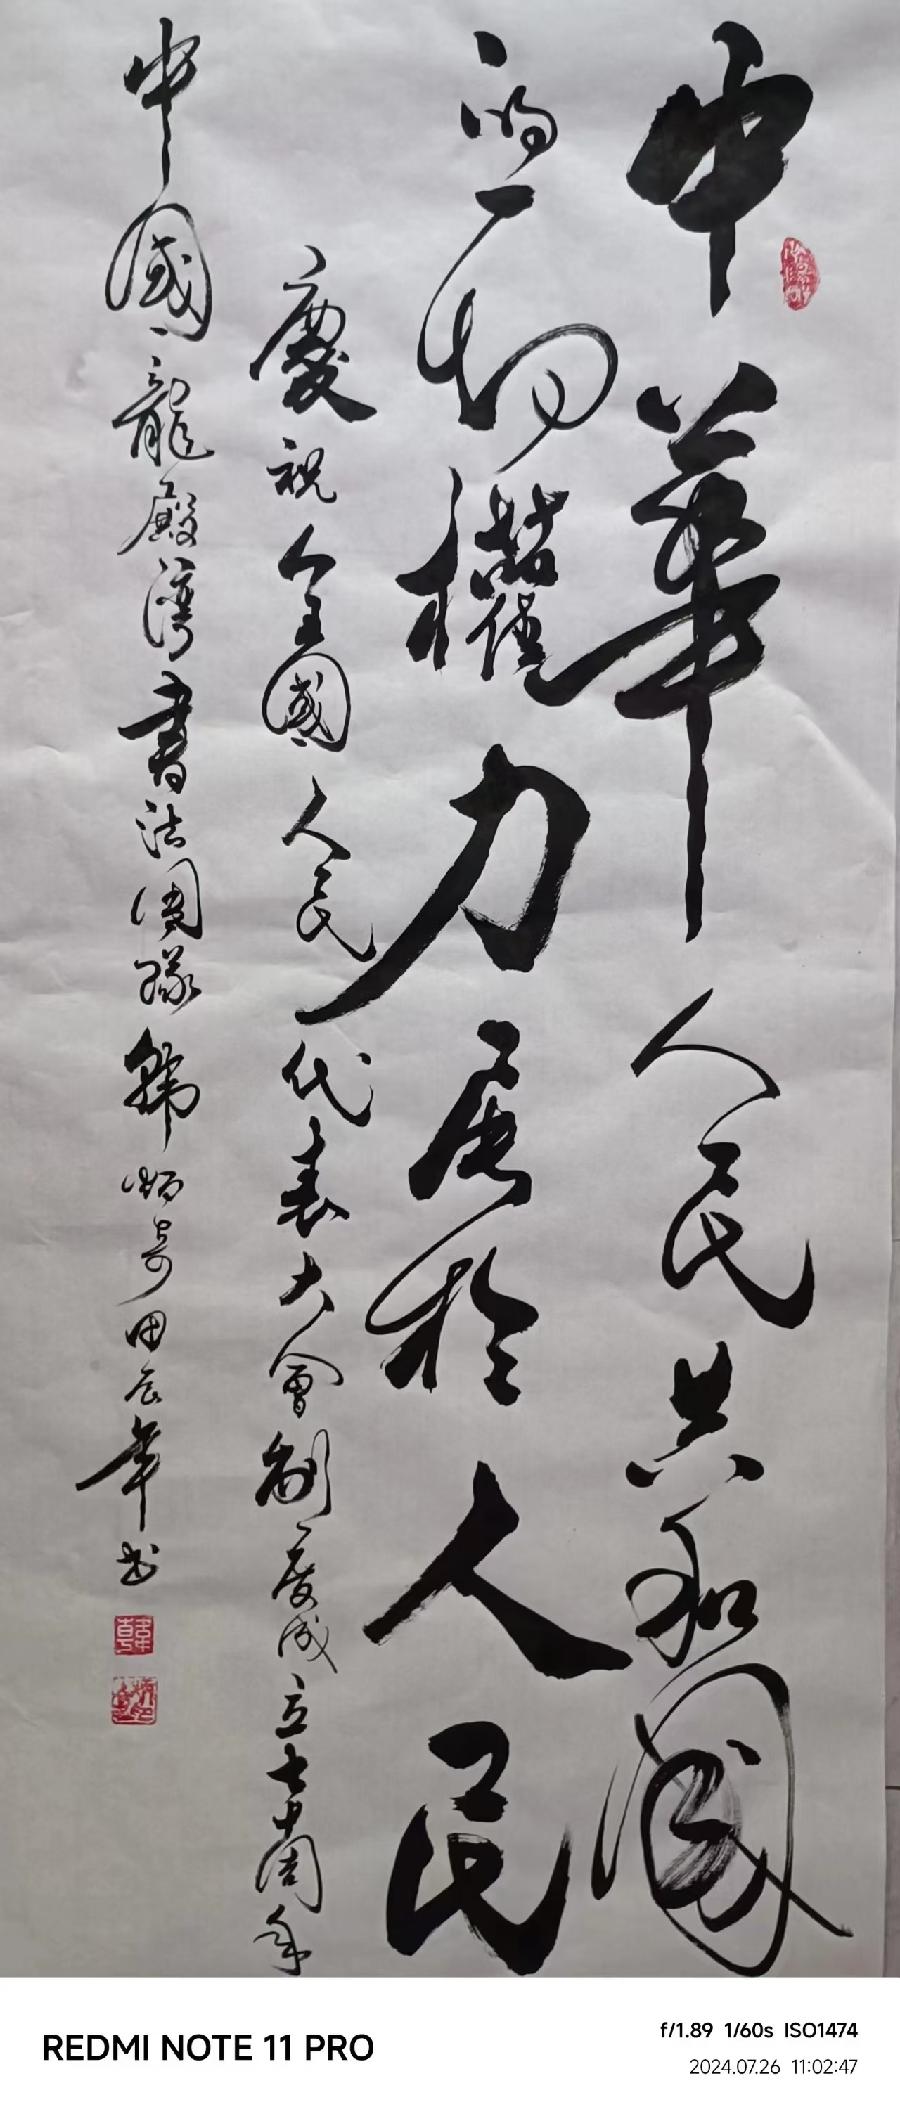 中華人民共和國
的一切權力屬於人民
慶祝全國人民代表大會制度成立七十周年
中國龍殿灣書法團隊韓炳奇甲辰年书
REDMI NOTE 11 PRO
f/1.89 1/60s ISO1474
2024.07.26 11:02:47